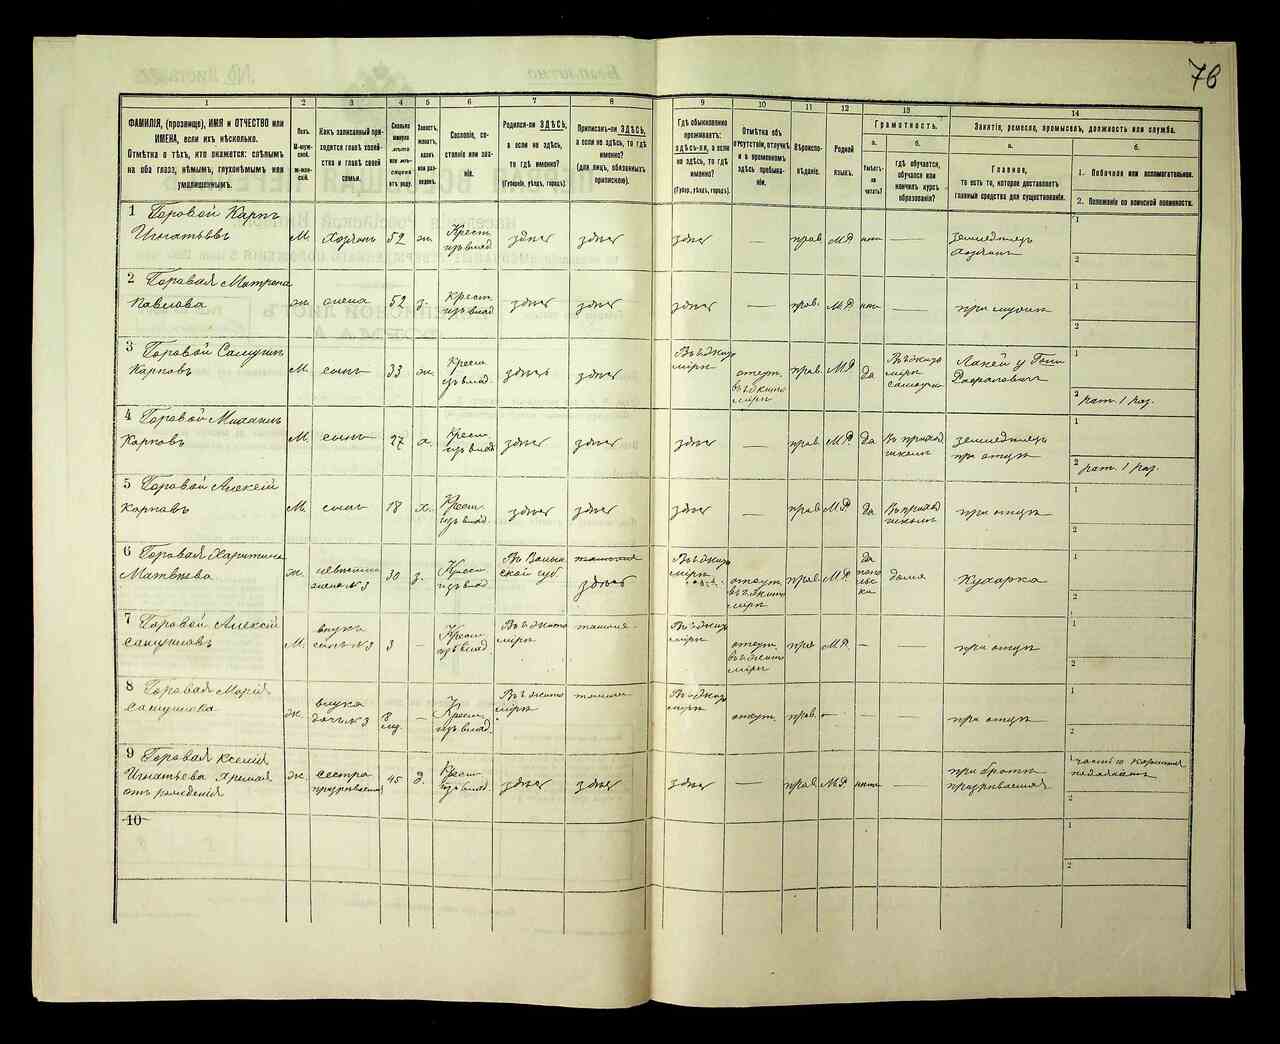 76
1
2
3
4
5
6
7
8
9
10
11
12
13
14
ФАМИЛІЯ, (прозвище), ИМЯ и ОТЧЕСТВО или
ИМЕНА, если ихъ нѣсколько.
Отмѣтка о тѣхъ, кто окажется: слѣпымъ
на оба глаза, нѣмымъ, глухонѣмымъ или
умалишеннымъ.
Полъ.
М-муж-
ской.
Ж-жен-
скій.
Какъ записанный при-
ходится главѣ хозяй-
ства и главѣ своей
семьи.
Сколько
минуло
лѣтъ
или мѣ-
сяцевъ
отъ роду.
Холостъ,
женатъ,
вдовъ
или раз-
веденъ.
Сословіе, со-
стояніе или зва-
ніе.
Родился-ли ЗДѢСЬ,
а если не здѣсь,
то гдѣ именно?
(Губернія, уѣздъ, городъ).
Приписанъ-ли ЗДѢСЬ,
а если не здѣсь, то гдѣ
именно?
(для лицъ, обязанныхъ
припискою).
Гдѣ обыкновенно
проживаетъ:
ЗДѢСЬ-ли, а если
не здѣсь, то гдѣ
именно?
(Губер., уѣздъ, городъ).
Отмѣтка объ
отсутствіи, отлучкѣ
и о временномъ
здѣсь пребыва-
ніи.
Вѣроиспо-
вѣданіе.
Родной
языкъ.
Грамотность.
а.
Умѣетъ-
ли
читать?
б.
Гдѣ обучается,
обучался или
кончилъ курсъ
образованія?
Занятіе, ремесло, промыселъ, должность или служба.
а.
Главное,
то есть то, которое доставляетъ
главныя средства для существованія.
б.
1. Побочное или вспомогательное.
2. Положеніе по воинской повинности.
1 Горовой Карпъ
Игнатьевъ
М. хозяинъ 52 ж. Крест. изъ влад. здѣсь здѣсь здѣсь — прав. МР нѣтъ — земледѣлецъ хозяинъ
2 Горовая Матрона
Павлова
ж. жена 52 з. Крест. изъ влад. здѣсь здѣсь здѣсь — прав. МР нѣтъ — при мужѣ
3 Горовой
Карповъ
М. сынъ 33 ж. Крест. изъ влад. здѣсь здѣсь Въ г. Жито мірѣ отсут. въ г. Жито мірѣ прав. МР да Лакей у
рат. 1 раз.
4 Горовой
Карповъ
М. сынъ 27 х. Крест. изъ влад. здѣсь здѣсь здѣсь — прав. МР да Въ приход. школѣ земледѣлецъ при отцѣ
рат. 1 раз.
5 Горовой Алексѣй
Карповъ
М. сынъ 18 х. Крест. изъ влад. здѣсь здѣсь здѣсь — прав. МР да Въ приход. школѣ при отцѣ
6 Горовая Харитина
Матвѣева
ж. невѣстка жена №3 30 з. Крест. изъ влад. Въ Волын ской губ. здѣсь Въ г. Жито мірѣ отсут. въ г. Жито мірѣ прав. МР да по поль ски дома Кухарка
7 Горовой Алексѣй
М. внукъ сынъ №3 3 — Крест. изъ влад. Въ г. Жито мірѣ Въ г. Жито мірѣ отсут. въ г. Жито мірѣ прав. МР — — при отцѣ
8 Горовая Марія
ж. внука дочь №3 8 мѣ. — Крест. изъ влад. Въ г. Жито мірѣ Въ г. Жито мірѣ отсут. прав. — — при отцѣ
9 Горовая Ксенія
Игнатьева
отъ рожденія
ж. сестра 45 д. Крест. изъ влад. здѣсь здѣсь здѣсь — прав. МР нѣтъ — при братѣ
10